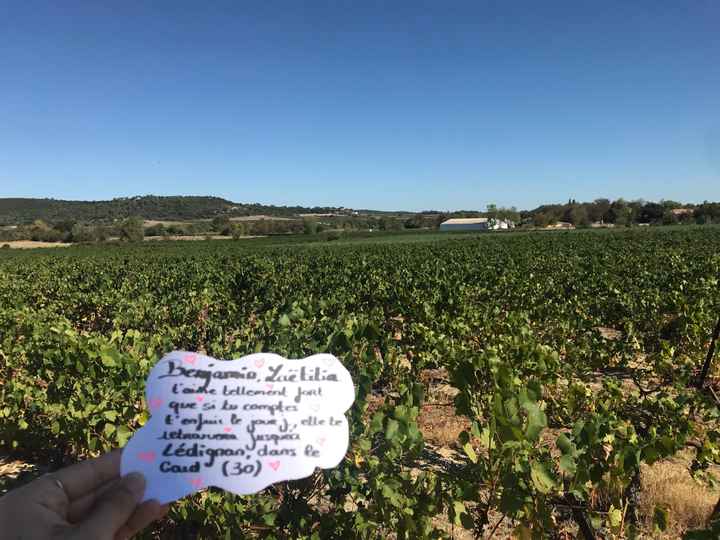 Benjamin, Laëtitia
t'aime tellement fort
que si tu comptes
t'enfuir le jour J, elle te
retrouvera jusqu'à
Lédignan, dans le
Gard (30)